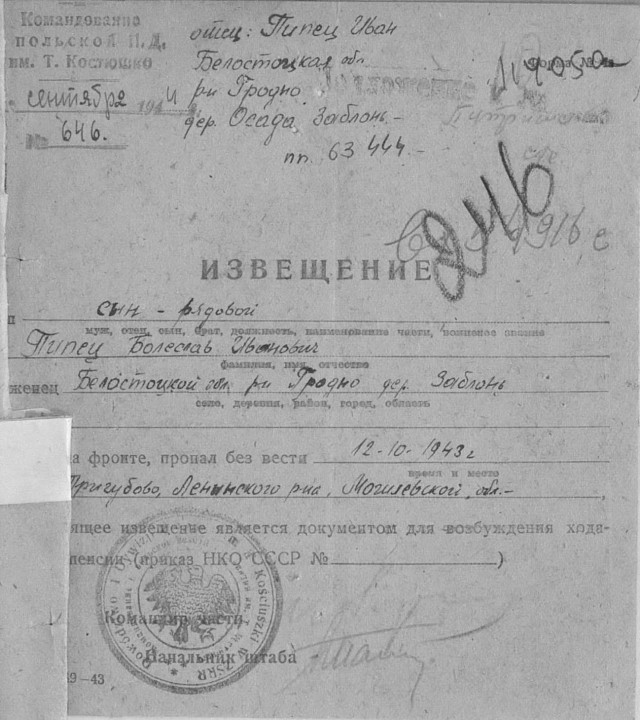 Командование
польской П.Д.
им. Т. Костюшко
сентября 1944
№ 646.
отец: Пипец Иван
Белостоцкая обл
р-н Гродно
дер. Осада Заблонь -
пп. 63444. -
246
ИЗВЕЩЕНИЕ
сын - рядовой
муж, отец, сын, брат, должность, наименование части, воинское звание
Пипец Болеслав Иванович
фамилия, имя, отчество
женец Белостоцкой обл. р-н Гродно дер. Заблонь
село, деревня, район, город, область
на фронте, пропал без вести 12-10-1943 г
время и место
Тригубово, Ленинского р-на, Могилевской, обл. -
ящее извещение является документом для возбуждения хода-
пенсии (приказ НКО СССР № )
Командир части
Начальник штаба
9-43